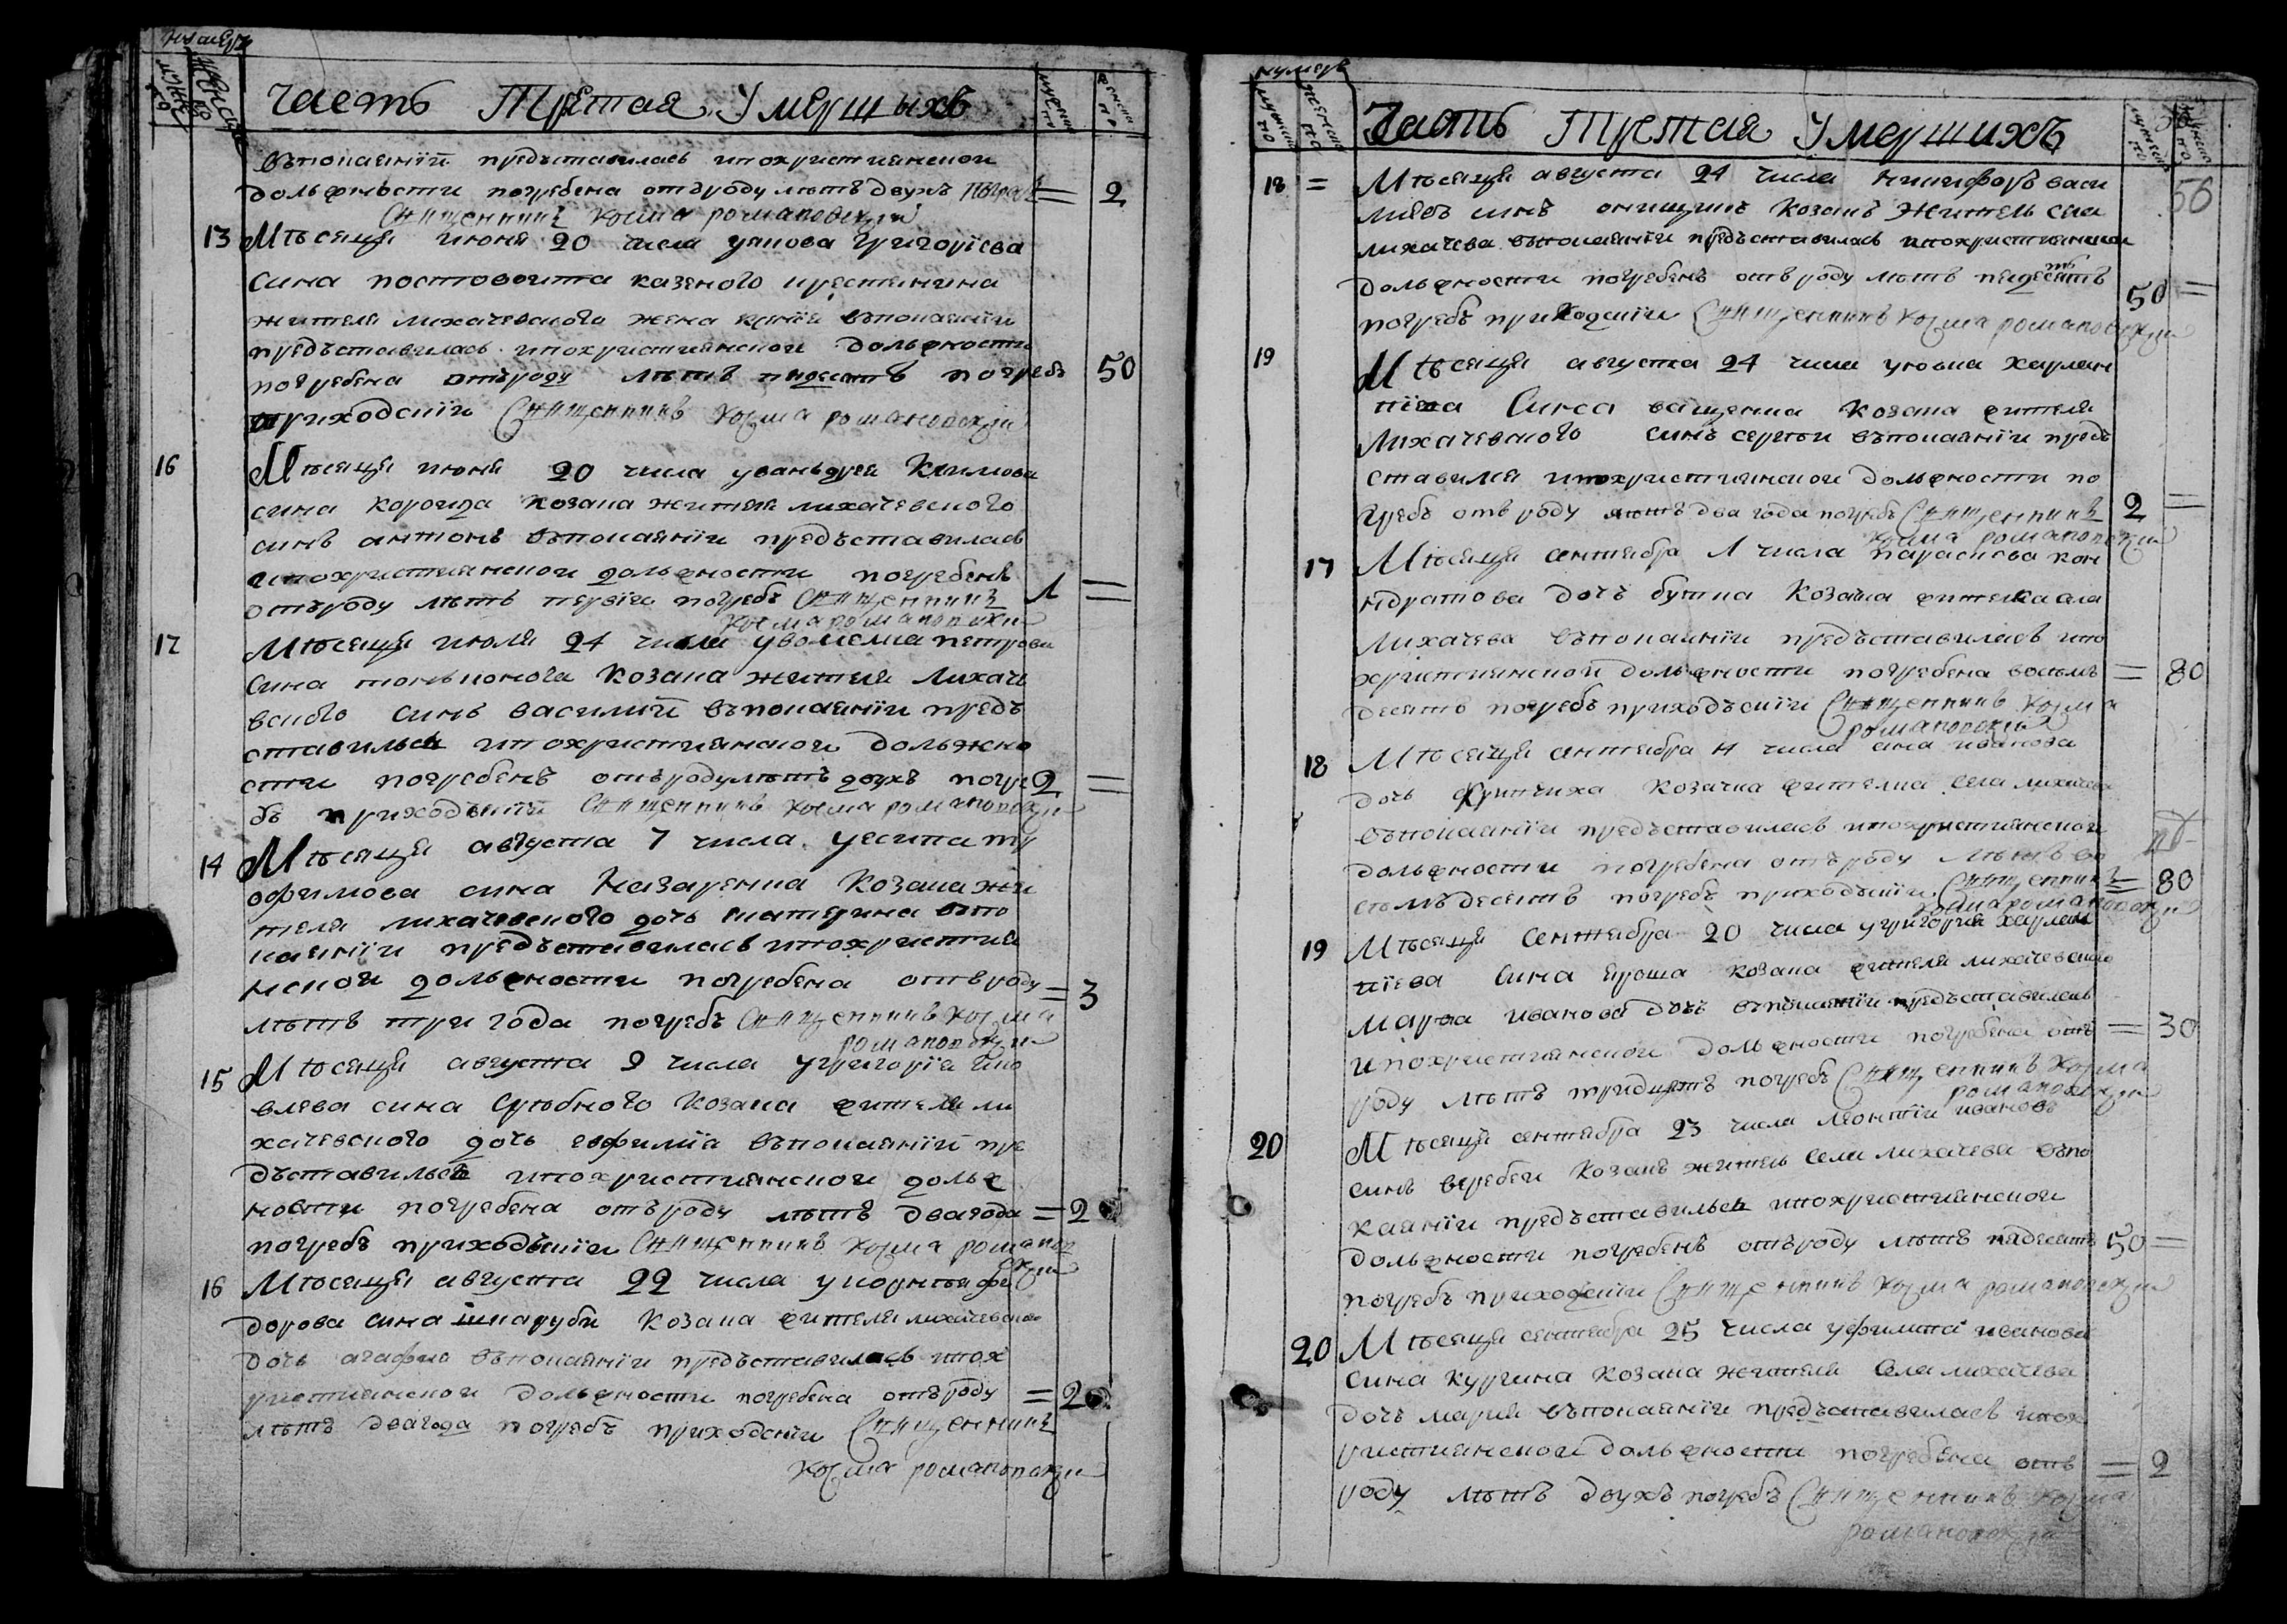 нумеръ
мужеско
женско
Часть Третая Умершыхъ
мужеско
женско
въпокаянїи предъставилась ипохристиянской
должности погребена отъроду лѣтъ двухъ = 2
Священникъ козма романовскїй
13 Мѣсяця июня 20 числа уякова григорїева
сина постовоита казеного крестянина
жителя лихачевского жена въпокаянїи
предъставилась ипохристиянской должности
погребена отъроду лѣтъ пядесятъ погребъ 50
приходскїи Священникъ козма романовскїй
16 Мѣсяця июня 20 числа Климова
сина козака жителя лихачевского
синъ антонъ въпокаянїи предъставилась
ипохристиянской должности погребенъ
отъроду лѣтъ первїи погребъ Священникъ 1 =
козма романовскїй
17 Мѣсяця июля 24 числа петрова
сина козака жителя лихаче
вского синъ василий въпокаянїи предъ
ставилься ипохристиянской должно
сти погребенъ отъроду лѣтъ двухъ погре 2 =
бъ приходъскїй Священникъ козма романовскїй
14 Мѣсяця августа 7 числа уесипа тр
офимова сина Назаренка Козака жи
теля лихачевского дочь екатерина въпо
каянїи предъставилась ипохристия
нской должности погребена отъроду = 3
лѣтъ три года погребъ Священникъ козма
романовскїй
15 Мѣсяця августа 9 числа угригорїя яко
влева сина Козака жителя ли
хачевского дочь евфимїя въпокаянїй пре
дъставилься ипохристиянской долж
ности погребена отъроду лѣтъ два года = 2
погребъ приходъскїи Священникъ козма романов
скїй
16 Мѣсяця августа 22 числа укорнѣя фе
дорова сина шкаруби козака жителя лихачевского
дочь агафия въпокаянїи предъставилась ипох
ристиянской должности погребена отъроду = 2
лѣтъ два года погребъ приходскїи Священникъ
козма романовскїй
нумеръ
мужеско
женско
Часть Третая Умершихъ
мужеско
женско
56
18 = Мѣсяця августа 24 числа никифоръ васи
лиевъ синъ онищикъ козакъ житель села
лихачева въпокаянїи предъставилась ипохристиянской
должности погребенъ отъ роду лѣтъ пядесятъ 50 =
погребъ приходскїи Священникъ козма романовскїй
19 Мѣсяця августа 24 числа харлам
пїева Сина ващенка козака жителя
Лихачевского синъ сергѣи въпокаянїи предъ
ставился ипохристиянской должности по
гребъ отъ роду лѣтъ два года погребъ Священникъ 2 =
козма романовскїй
17 Мѣсяця сентября 1 числа параскова кон
ндратова дочъ козачка жителка села
лихачева въпокаянїи предъставилась ипо
християнской должности погребена восьмъ = 80
десятъ погребъ приходъскїи Священникъ козма
романовскїй
18 Мѣсяця сентября 4 числа иванова
дочь козачка жителка села лихачева
въпокаянїи предъставилась ипохристиянской
должности погребена отъ роду лѣтъ во
сѣмъдесятъ погребъ приходъскїи Священникъ = 80
козма романовскїй
19 Мѣсяця Сентября 20 числа угригория харлам
пїева Сина козака жителя лихачевского
марѳа иванова дочъ въпокаянїи предъставилась
ипохристиянской должности погребена отъ = 30
роду лѣтъ тридцятъ погребъ Священникъ козма
романовскїй
20 Мѣсяця сентября 23 числа леонтїи ивановъ
синъ веребеи козакъ житель села лихачева въпо
каянїи предъставилься ипохристиянской
должности погребенъ отъроду лѣтъ пядесятъ 50 =
погребъ приходскїи Священникъ козма романовскїй
20 Мѣсяця сентября 25 числа уфилипа иванова
сина кургина козака жителя села лихачева
дочъ мария въпокаянїи предъставилась ипох
ристиянской должности погребена отъ = 2
роду лѣтъ двухъ погребъ Священникъ козма
романовскїй